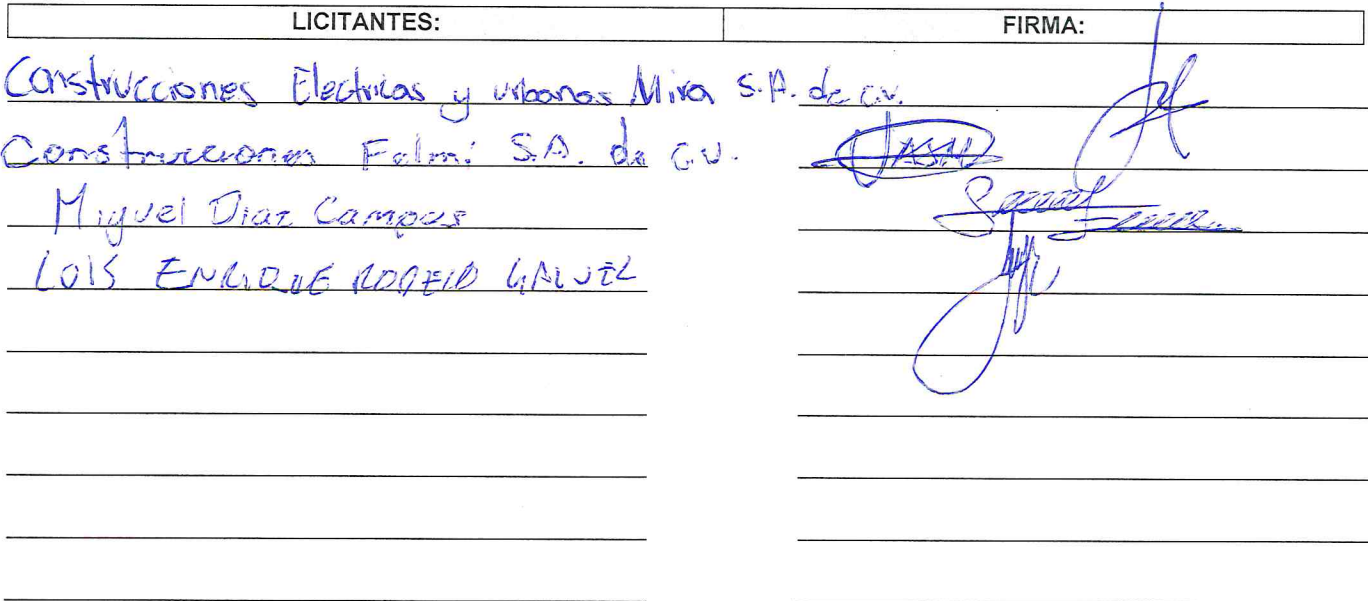 LICITANTES: FIRMA:
Construcciones Electricas y urbanas Mira S.A. de c.v.
Construcciones Falmi S.A. de C.V.
Miguel Diaz Campos
LUIS ENRIQUE ROMERO